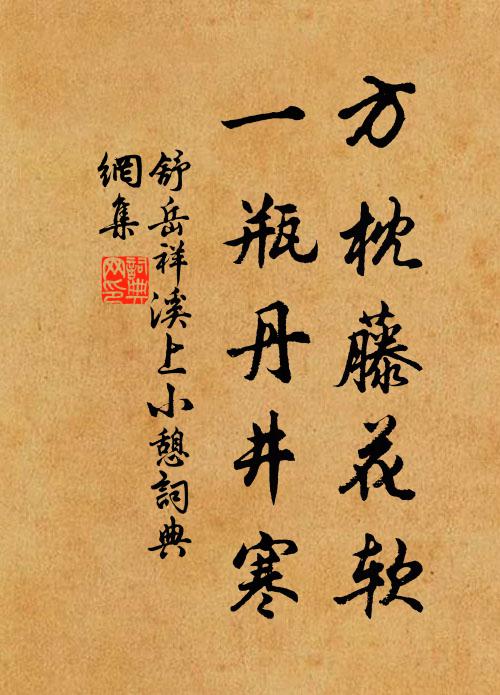 方枕藤花软
一瓶丹井寒
舒岳祥溪上小憩詞典
網集
詞典網印